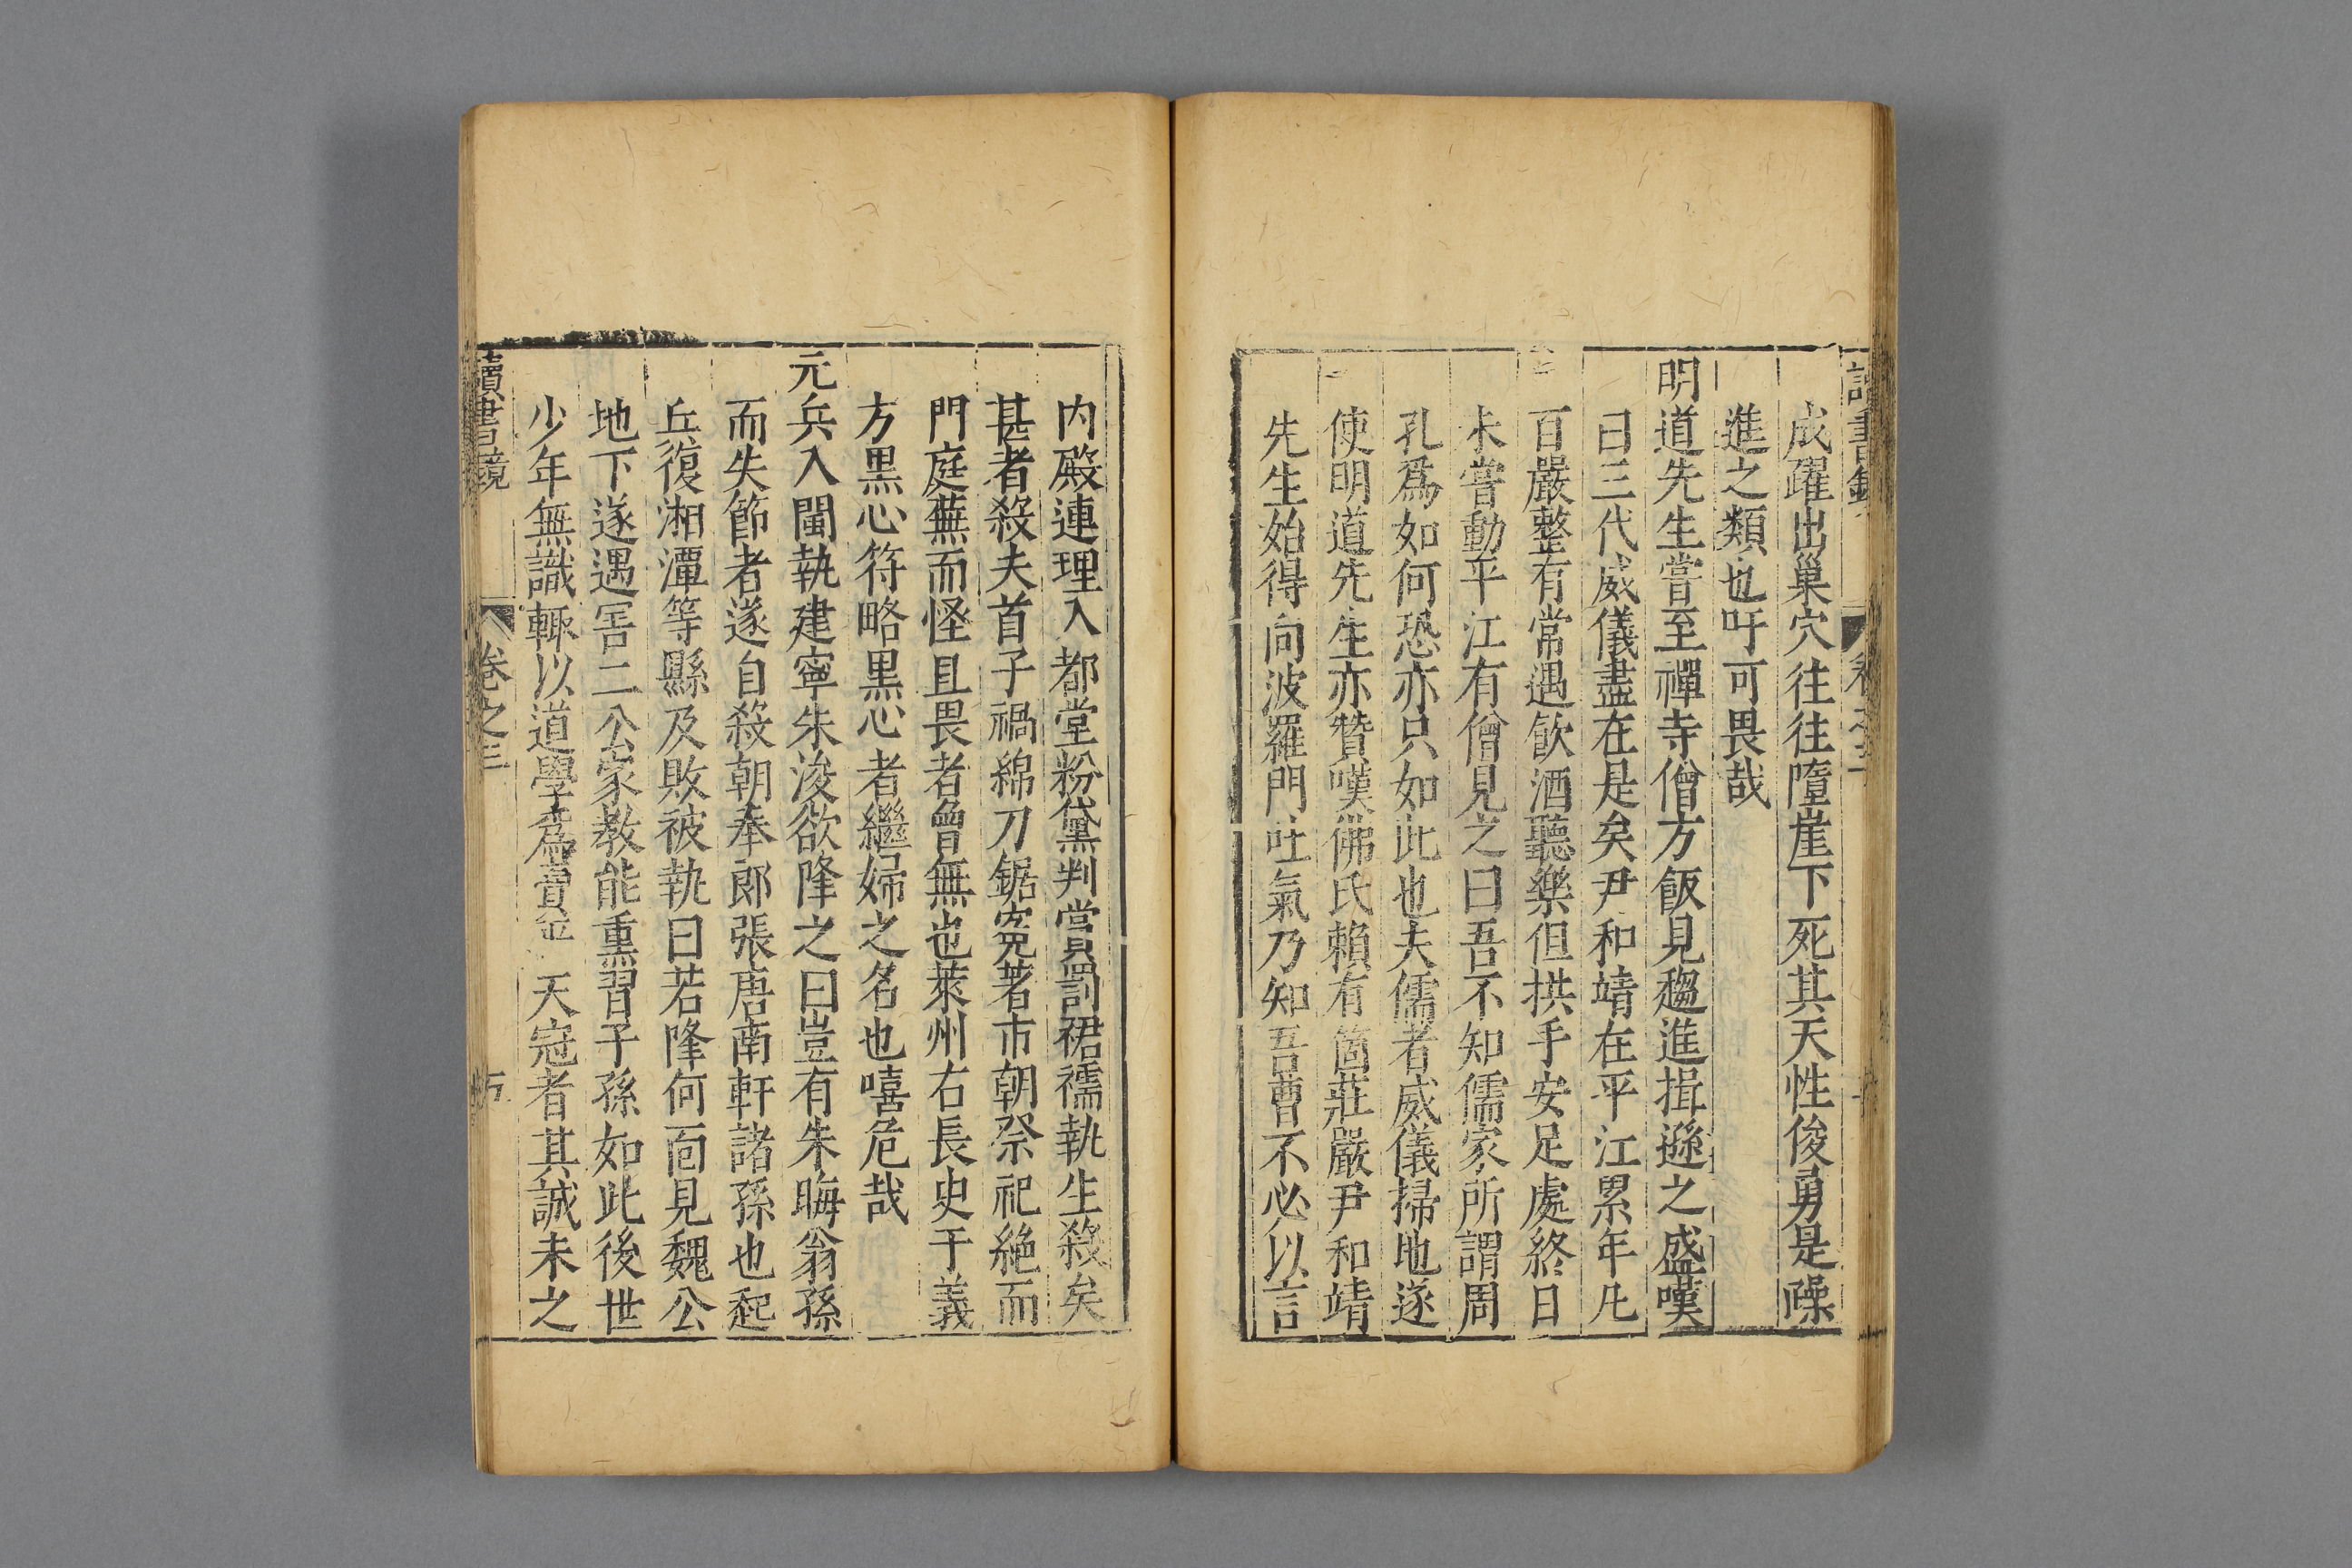 讀書鏡 卷之三
成躍出巢穴往往墮崖下死其天性俊勇是躁
進之類也吁可畏哉
明道先生嘗至禪寺僧方飯見趨進揖遜之盛嘆
曰三代威儀盡在是矣尹和靖在平江累年凡
百嚴整有常遇飲酒聽樂但拱手安足處終日
未嘗動平江有僧見之曰吾不知儒家所謂周
孔爲如何恐亦只如此也夫儒者威儀掃地遂
使明道先生亦贊嘆佛氏賴有箇莊嚴尹和靖
先生始得向波羅門吐氣乃知吾曹不必以言
内殿連理入都堂粉黛判賞罰裙襦執生殺矣
甚者殺夫首子禍綿刀鋸寃著市朝祭祀絶而
門庭蕪而怪且畏者曾無也萊州右長史于義
方黑心符略黑心者繼婦之名也嘻危哉
元兵入閩執建寧朱浚欲降之曰豈有朱晦翁孫
而失節者遂自殺朝奉郎張唐南軒諸孫也起
丘復湘潭等縣及敗被執曰若降何面見魏公
地下遂遇害二公家教能熏習子孫如此後世
少年無識輙以道學爲賣 天冠者其誠未之
讀書鏡 卷之三 五